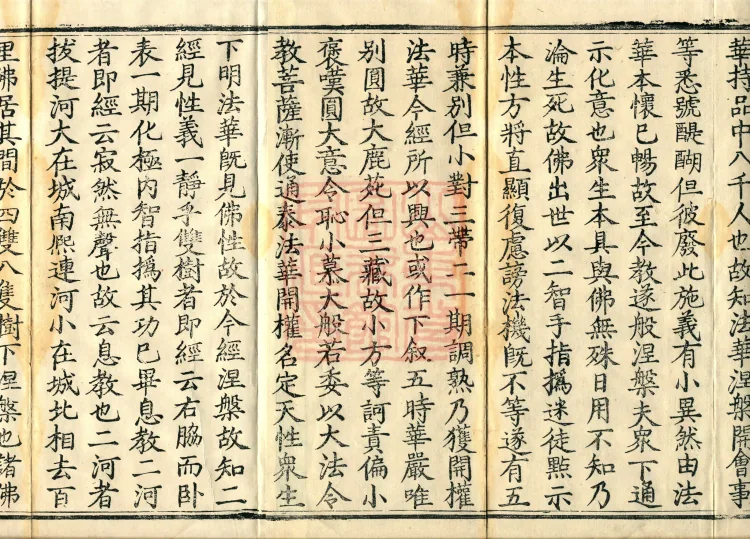 華持品中八千人也故知法華涅槃開會事
等悉號醍醐但彼廢此施義有小異然由法
華本懷已暢故至今教遂般涅槃夫衆下通
示化意也衆生本具與佛無殊日用不知乃
淪生死故佛出世以二智手指撝迷徒㸃示
本性方將直顯復慮謗法機旣不等遂有五
時兼别但小對三帶二一期調熟乃獲開權
法華今經所以興也或作下叙五時華嚴唯
别圓故大鹿苑但三藏故小方等訶責偏小
褒嘆圓大意令恥小慕大般若委以大法令
教菩薩漸使通泰法華開權名定天性衆生
下明法華旣見佛性故於今經涅槃故知二
經見性義一靜乎雙樹者即經云右脇而卧
表一期化極内智指撝其功已畢息教二河
者即經云寂然無聲也故云息教也二河者
拔提河大在城南熈連河小在城北相去百
里佛居其間於四雙八隻樹下涅槃也諸佛